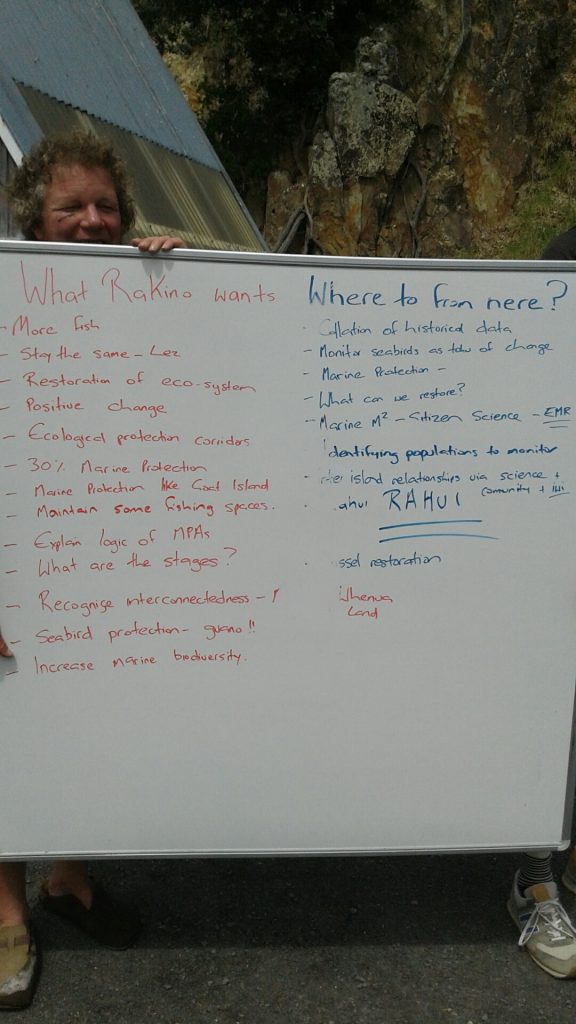 What Rakino wants
- More fish
- Stay the same - Lez
- Restoration of eco-system
- Positive change
- Ecological protection corridors
- 30% Marine Protection
- Marine Protection like Goat Island
- Maintain some fishing spaces.
- Explain logic of MPAs
- What are the stages?
- Recognise interconnectedness -
- Seabird protection - guano!!
- Increase marine biodiversity.
Where to from here?
Collation of historical data
- Monitor seabirds as of change
- Marine Protection -
- What can we restore?
- Marine M² - Citizen Science - EMR
Identifying populations to monitor
- island relationships via science +
community + iwi
ahui RAHUI
ssel restoration
Whenua
Land